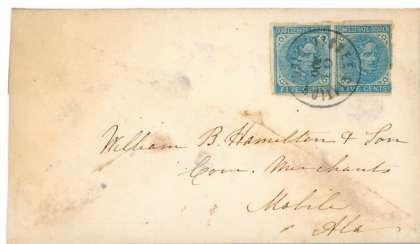 CONFEDERATE STATES CONFEDERATE STATES
FIVE CENTS FIVE CENTS
William B. Hamilton & Son
Com. Merchants
Mobile
Ala